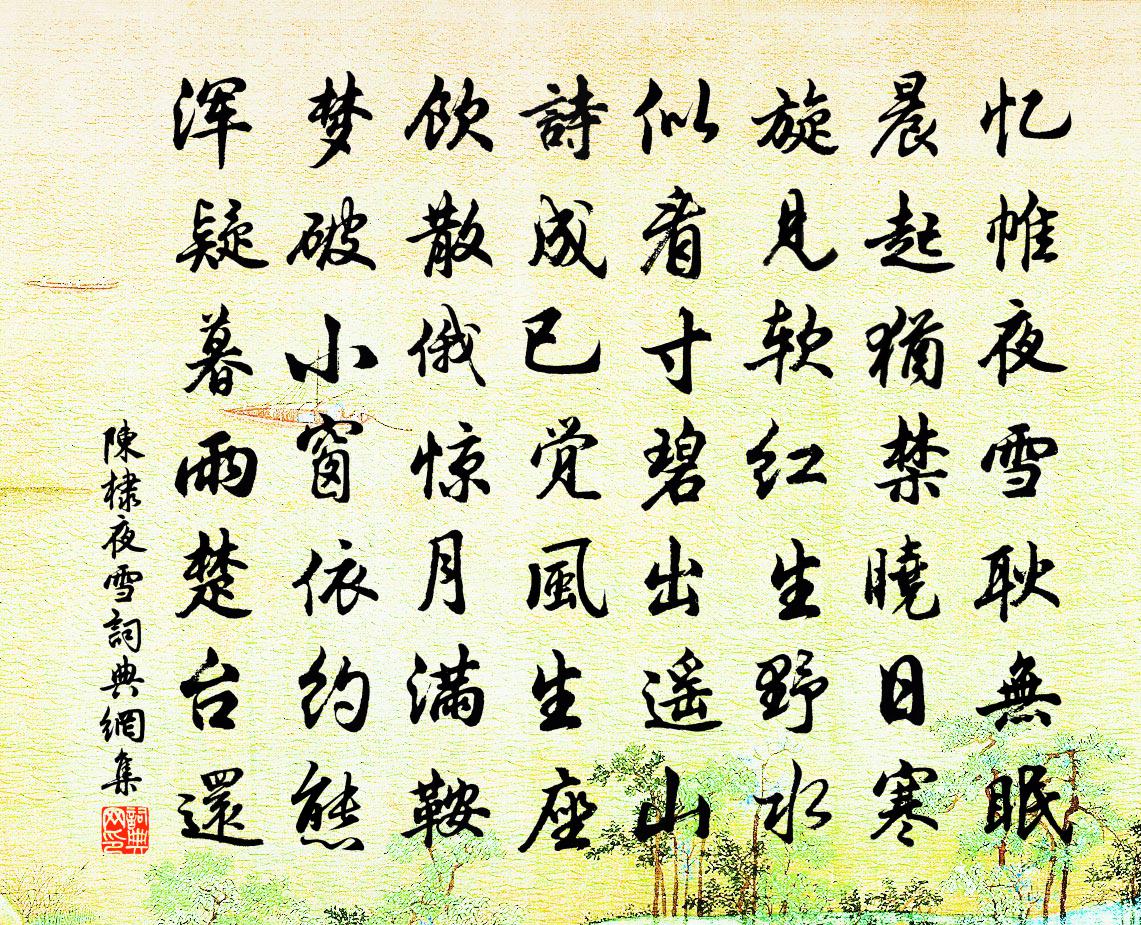 忆帷夜雪耿無眠
晨起猶禁曉日寒
旋見软红生野水
似看寸碧出遥山
詩成已觉風生座
飲散俄惊月满鞍
梦破小窗依约熊
浑疑暮雨楚台還
陳棣夜雪詞典網集
詞典网印